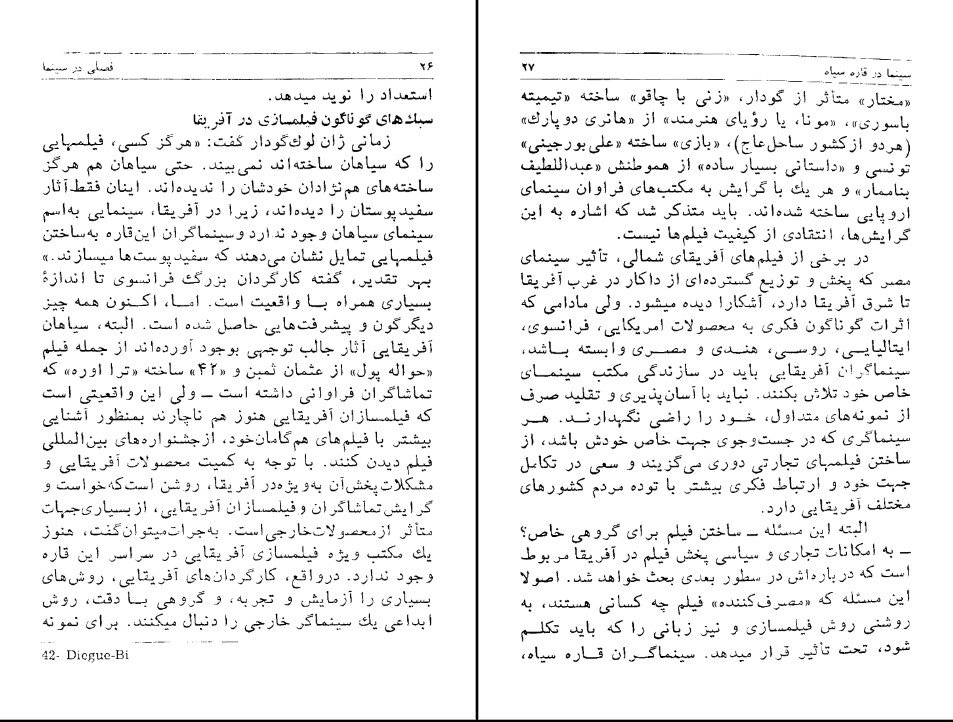 ۲۶ فصلی در سینما
استعداد را نوید میدهد.
سبك‌های گوناگون فیلمسازی در آفریقا
زمانی ژان لوك‌گودار گفت: «هرگز کسی، فیلمهایی
را که سیاهان ساخته‌اند نمی‌بیند. حتی سیاهان هم هرگز
ساخته‌های هم‌نژادان خودشان را ندیده‌اند. اینان فقط آثار
سفیدپوستان را دیده‌اند، زیرا در آفریقا، سینمایی به‌اسم
سینمای سیاهان وجود ندارد وسینماگران این‌قاره به‌ساختن
فیلمهایی تمایل نشان می‌دهند که سفیدپوست‌ها میسازند.»
بهر تقدیر، گفته کارگردان بزرگ فرانسوی تا اندازهٔ
بسیاری همراه بـا واقعیت است. امـا، اکـنون همه چیز
دیگرگون و پیشرفت‌هایی حاصل شده است. البته، سیاهان
آفریقایی آثار جالب توجهی بوجود آورده‌اند از جمله فیلم
«حواله پول» از عثمان ثمبن و «۴۲» ساخته «ترا اوره» که
تماشاگران فراوانی داشته است ــ ولی این واقعیتی است
که فیلمسازان آفریقایی هنوز هم ناچارند بمنظور آشنایی
بیشتر با فیلم‌های هم‌گامان‌خود، ازجشنواره‌های بین‌المللی
فیلم دیدن کنند. با توجه به کمیت محصولات آفریقایی و
مشکلات پخش‌آن به‌ویژه‌در آفریقا، روشن است‌که‌خواست و
گرایش تماشاگران و فیلمسازان آفریقایی، از بسیاری‌جهات
متأثر ازمحصولات‌خارجی‌است. به‌جرات‌میتوان‌گفت، هنوز
یك مکتب ویژه فیلمسازی آفریقایی در سراسر این قاره
وجود ندارد. درواقع، کارگردان‌های آفریقایی، روش‌های
بسیاری را آزمایش و تجربه، و گروهی بـا دقت، روش
ابداعی یك سینماگر خارجی را دنبال میکنند. برای نمونه
42- Diegue-Bi
سینما در قاره سیاه ۲۷
«مختار» متأثر از گودار، «زنی با چاقو» ساخته «تیمیته
باسوری»، «مونا، یا رؤیای هنرمند» از «هانری دوپارك»
(هردو ازکشور ساحل‌عاج)، «بازی» ساخته «علی‌بورجینی»
تونسی و «داستانی بسیار ساده» از هموطنش «عبداللطیف
بناممار» و هر یك با گرایش به مکتب‌های فراوان سینمای
اروپایی ساخته شده‌اند. باید متذکر شد که اشاره به این
گرایش‌ها، انتقادی از کیفیت فیلم‌ها نیست.
در برخی از فیلم‌های آفریقای شمالی، تأثیر سینمای
مصر که پخش و توزیع گسترده‌ای از داکار در غرب آفریقا
تا شرق آفریقا دارد، آشکارا دیده میشود. ولی مادامی که
اثرات گوناگون فکری به محصولات امریکایی، فرانسوی،
ایتالیایـی، روسـی، هنـدی و مصـری وابسته بـاشد،
سینماگران آفریقایی باید در سازندگی مکتب سینمـای
خاص خود تلاش بکنند. نباید با آسان‌پذیری و تقلید صرف
از نمونه‌های متداول، خـود را راضی نگهدارنـد. هـر
سینماگری که در جست‌وجوی جهت خاص خودش باشد، از
ساختن فیلمهای تجارتی دوری می‌گزیند و سعی در تکامل
جهت خود و ارتباط فکری بیشتر با توده مردم کشورهای
مختلف آفریقایی دارد.
البته این مسئله ــ ساختن فیلم برای گروهی خاص؟
ــ به امکانات تجاری و سیاسی پخش فیلم در آفریقا مربوط
است که درباره‌اش در سطور بعدی بحث خواهد شد. اصولا
این مسئله که «مصرف‌کننده» فیلم چه کسانی هستند، به
روشنی روش فیلمسازی و نیز زبانی را که باید تکلـم
شود، تحت تأثیر قرار میدهد. سینماگـران قـاره سیاه،